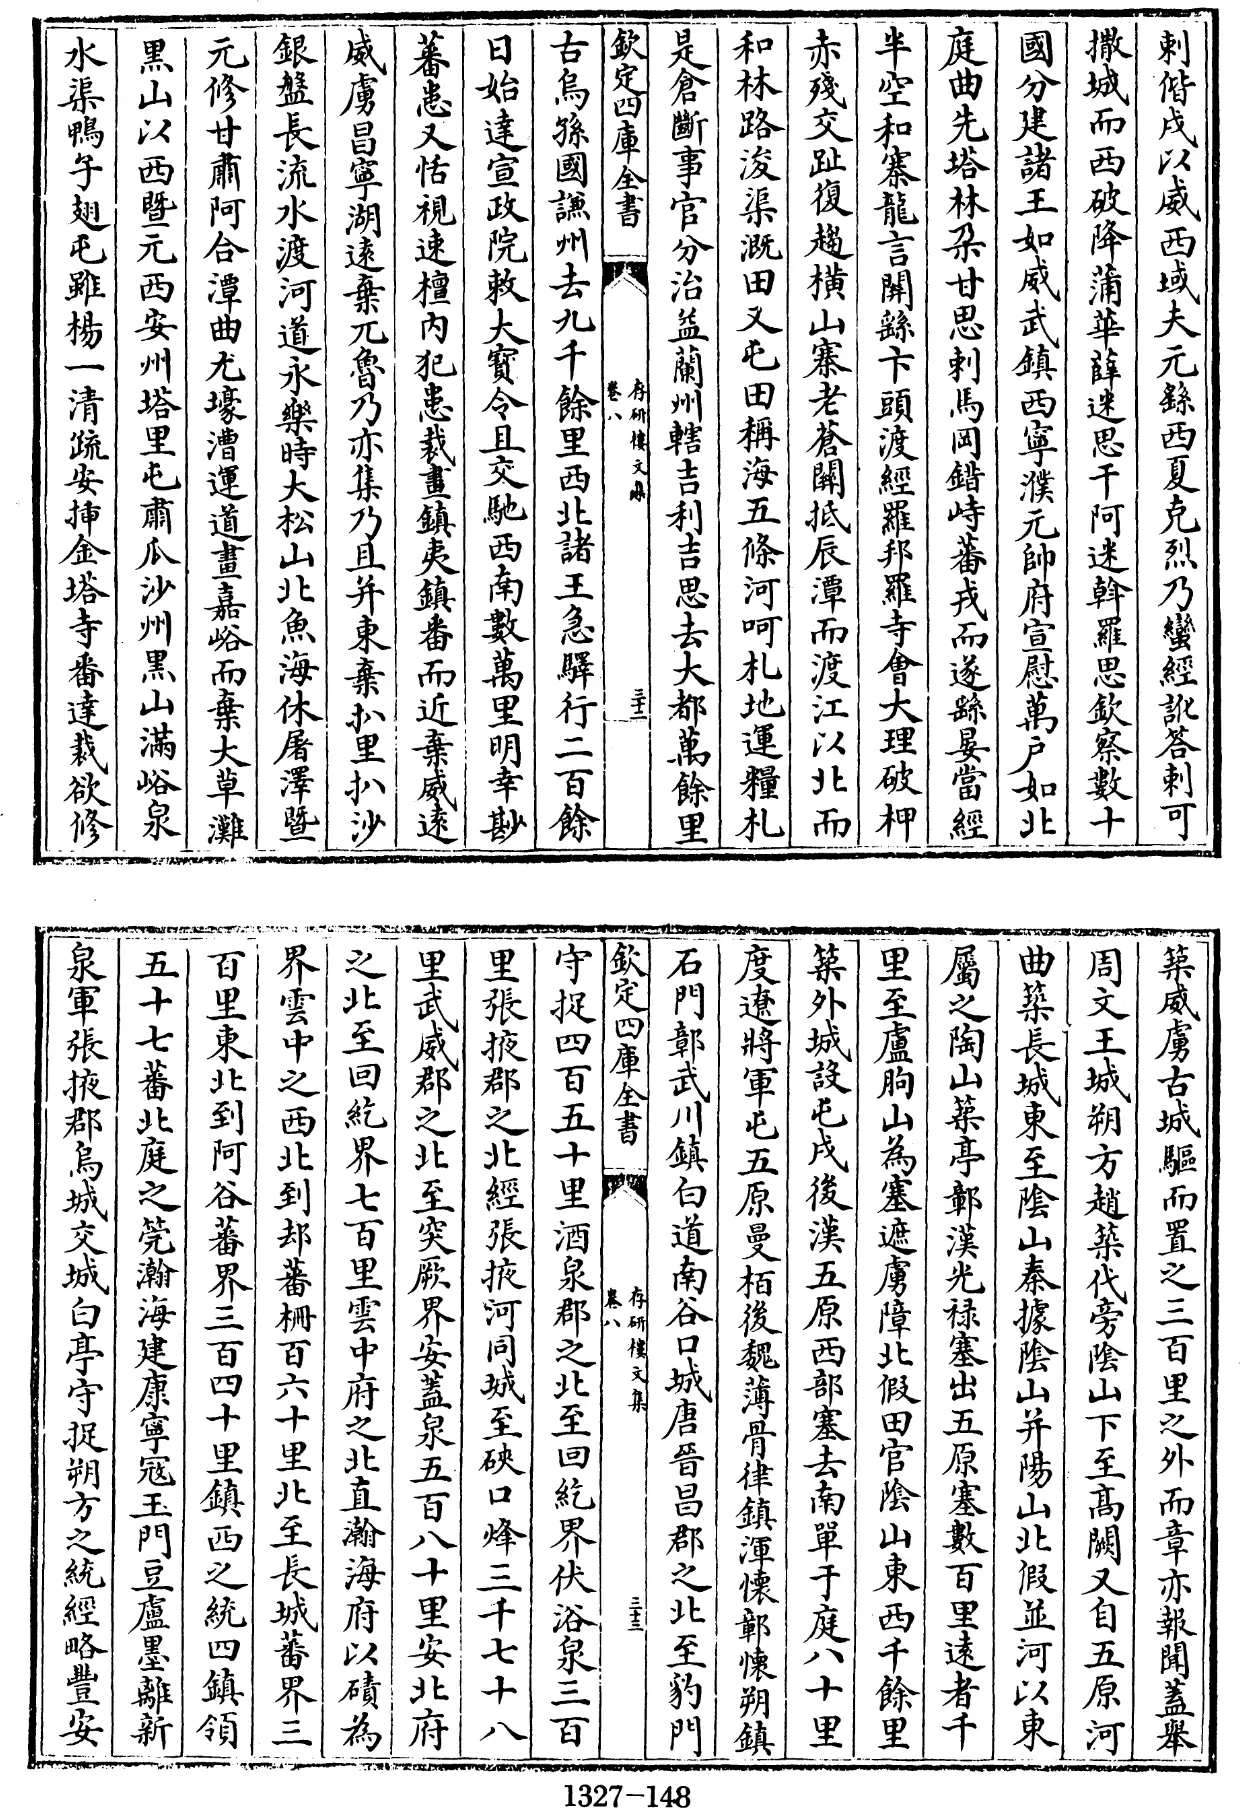 剌偕戌以威西域夫元繇西夏克烈乃蠻經訛答剌可
撒城而西破降蒲華薛迷思干阿迷斡羅思欽察數十
國分建諸王如威武鎮西寧濮元帥府宣慰萬户如北
庭曲先塔林朶甘思剌馬岡錯峙蕃戎而遂繇晏當經
半空和寨龍言關繇卞頭渡經羅邦羅寺會大理破柙
赤殘交趾復趨横山寨老蒼關抵辰潭而渡江以北而
和林路浚渠溉田又屯田稱海五條河呵札地運糧札
是倉斷事官分治益蘭州轄吉利吉思去大都萬餘里
欽定四庫全書
存研樓文集
卷八
三十二
古烏孫國謙州去九千餘里西北諸王急驛行二百餘
日始達宣政院敕大寶令且交馳西南數萬里明幸勘
蕃患又恬視速檀内犯患裁畫鎮夷鎮番而近棄威遠
威虜昌寧湖遠棄兀魯乃亦集乃且并東棄扒里扒沙
銀盤長流水渡河道永樂時大松山北魚海休屠澤暨
元修甘肅阿合潭曲尤壕漕運道畫嘉峪而棄大草灘
黒山以西暨元西安州塔里屯肅瓜沙州黒山滿峪泉
水渠鴨子翅屯雖楊一清疏安挿金塔寺番達裁欲修
築威虜古城驅而置之三百里之外而章亦報聞蓋舉
周文王城朔方趙築代旁隂山下至髙闕又自五原河
曲築長城東至隂山秦據隂山并陽山北假並河以東
屬之陶山築亭鄣漢光禄塞出五原塞數百里遠者千
里至盧朐山為塞遮虜障北假田官隂山東西千餘里
築外城設屯戌後漢五原西部塞去南單于庭八十里
度遼將軍屯五原曼栢後魏薄骨律鎮渾懷鄣懷朔鎮
石門鄣武川鎮白道南谷口城唐晉昌郡之北至豹門
欽定四庫全書
存研樓文集
卷八
三十三
守捉四百五十里酒泉郡之北至回紇界伏浴泉三百
里張掖郡之北經張掖河同城至硤口烽三千七十八
里武威郡之北至突厥界安蓋泉五百八十里安北府
之北至回紇界七百里雲中府之北直瀚海府以磧為
界雲中之西北到却蕃柵百六十里北至長城蕃界三
百里東北到阿谷蕃界三百四十里鎮西之統四鎮領
五十七蕃北庭之筦瀚海建康寧寇玉門豆盧墨離新
泉軍張掖郡烏城交城白亭守捉朔方之統經略豐安
1327-148